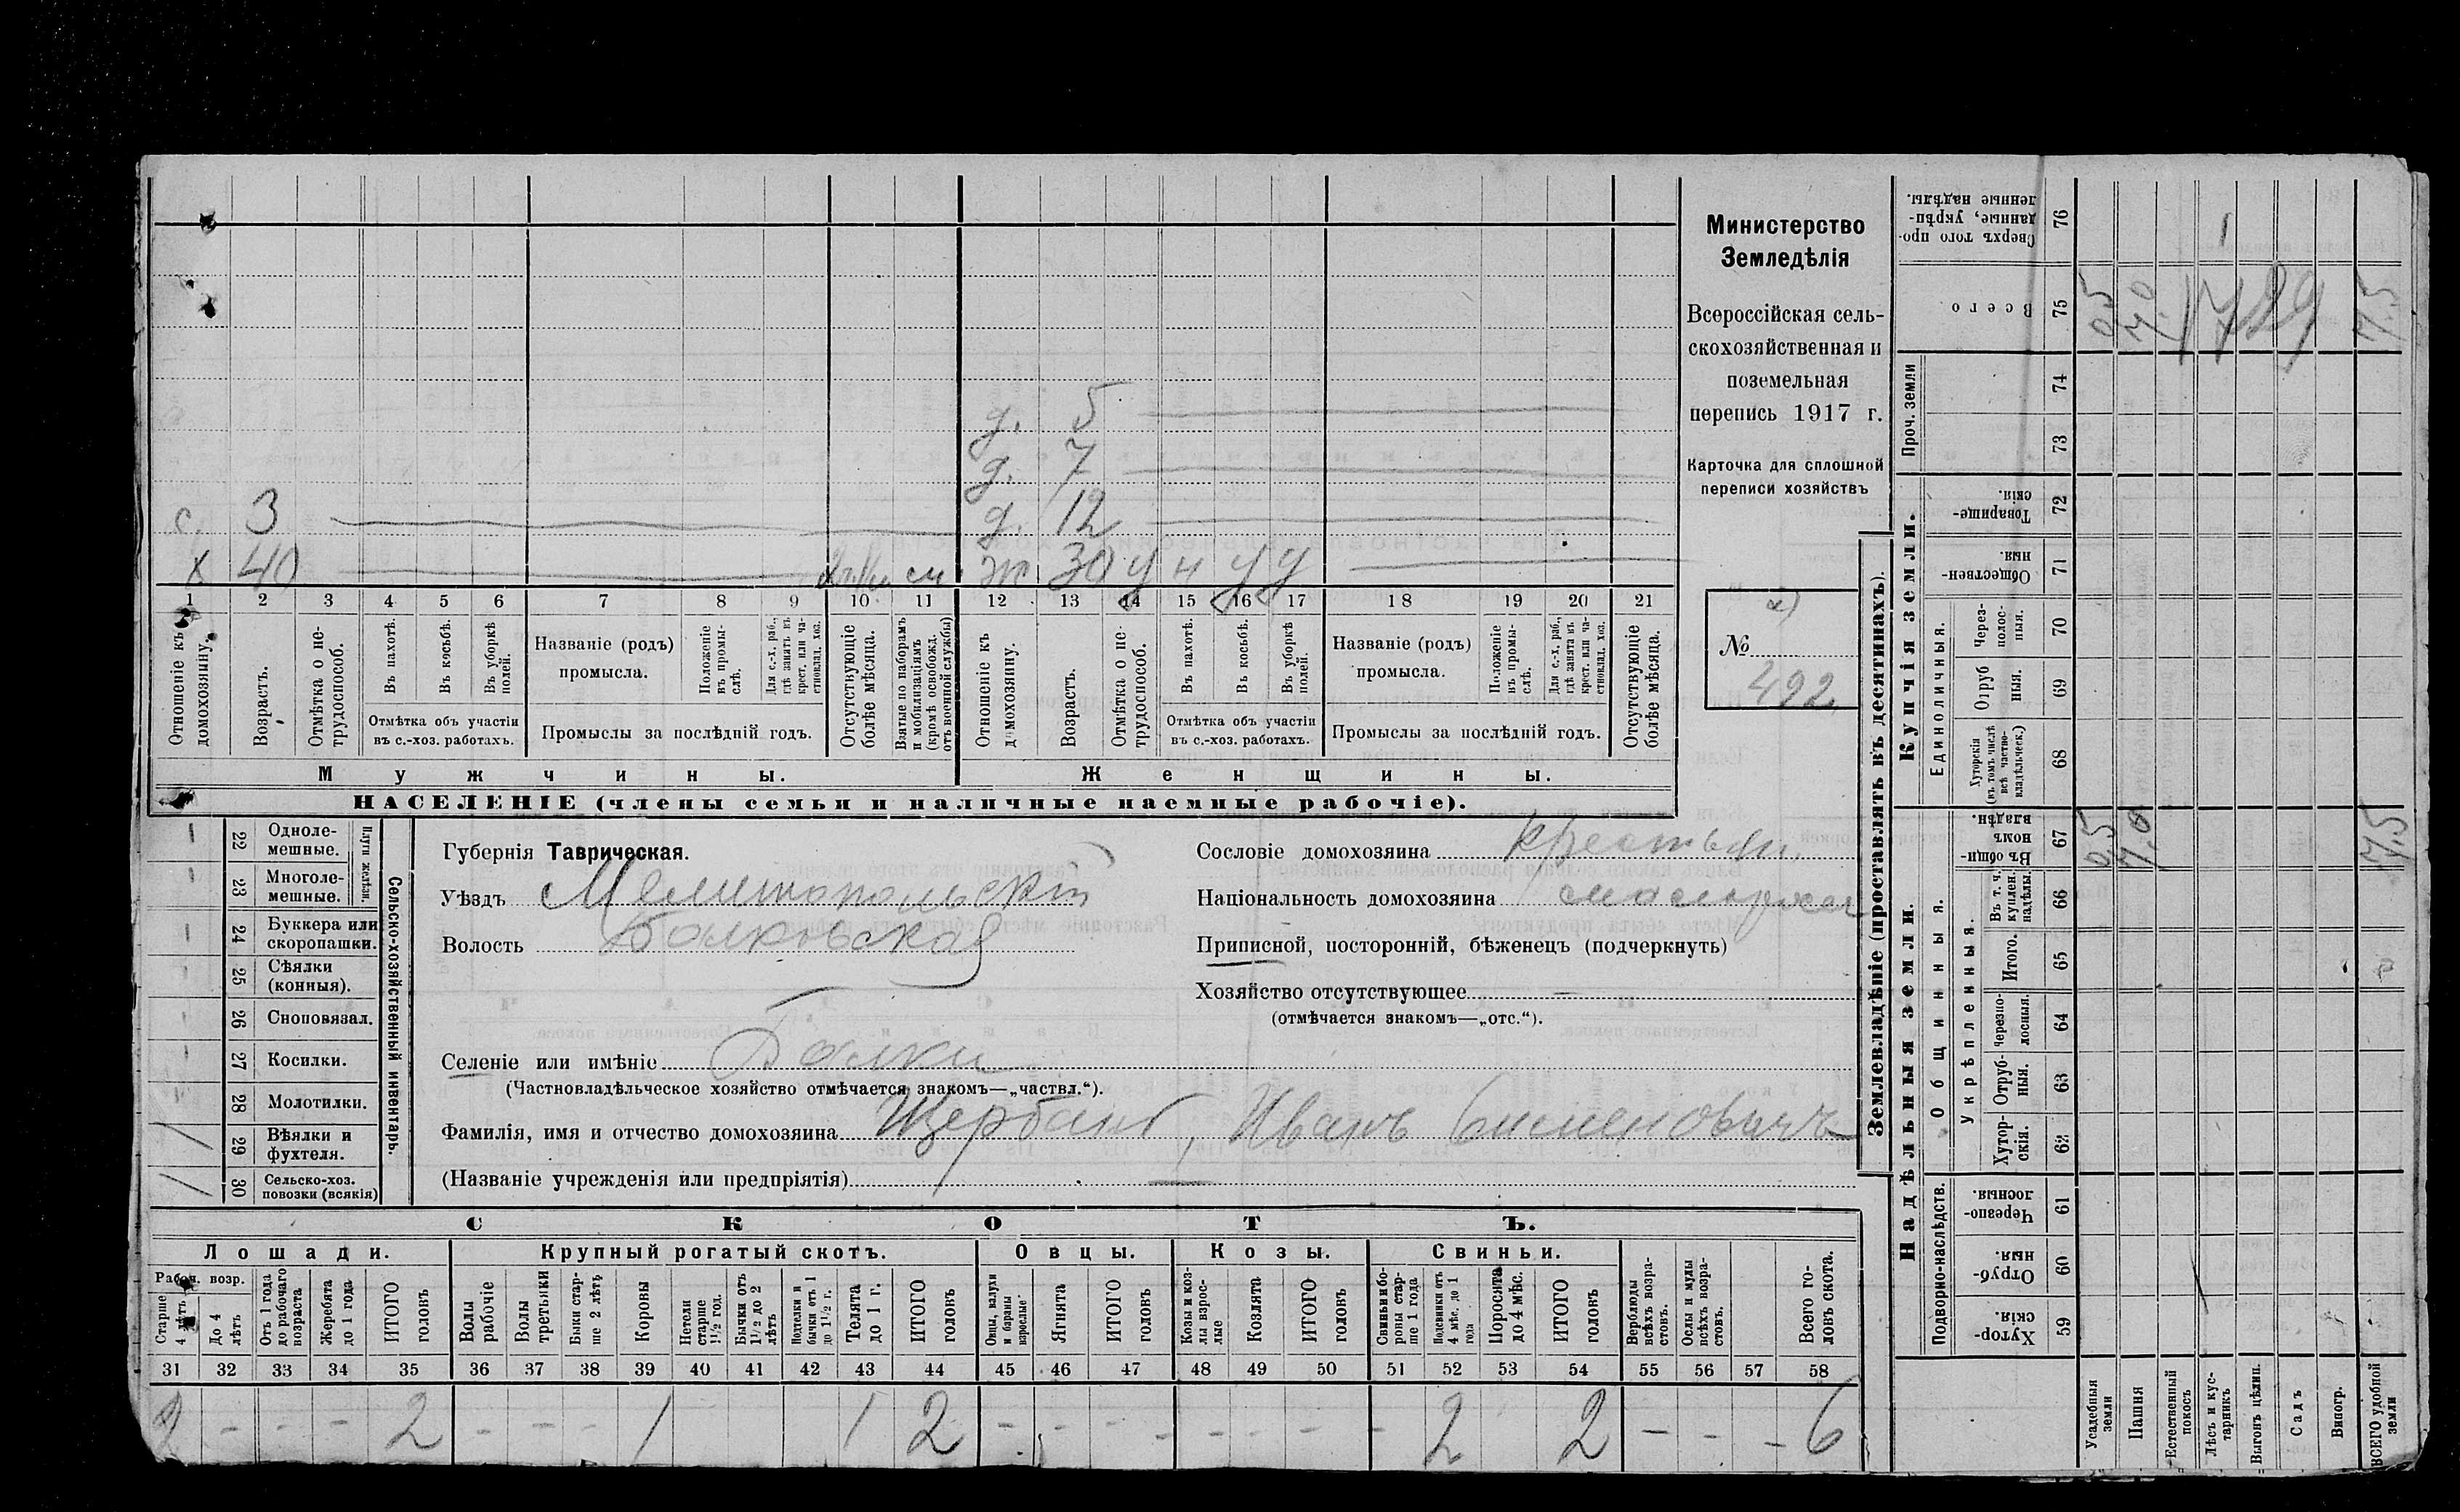 Министерство
Земледѣлія
Всероссійская сель-
скохозяйственная и
поземельная
перепись 1917 г.
Карточка для сплошной
переписи хозяйствъ
№
492.
д. 5
д. 7
с. 3 д. 12
х 40 см. жп 30 у н у у
1 2 3 4 5 6 7 8 9 10 11 12 13 14 15 16 17 18 19 20 21
Отношеніе къ домохозяину.
Возрастъ.
Отмѣтка о не-трудоспособ.
Въ пахотѣ.
Въ косьбѣ.
Въ уборкѣ полей.
Отмѣтка объ участіи
въ с.-хоз. работахъ.
Названіе (родъ)
промысла.
Положеніе въ промы-слѣ.
Для с.-х. раб., гдѣ занятъ въ крест. или ча-стновлад. хоз.
Промыслы за послѣдній годъ.
Отсутствующіе болѣе мѣсяца.
Взятые по наборамъ и мобилизаціямъ (кромѣ освобожд. отъ военной службы)
Отношеніе къ домохозяину.
Возрастъ.
Отмѣтка о не-трудоспособ.
Въ пахотѣ.
Въ косьбѣ.
Въ уборкѣ полей.
Отмѣтка объ участіи
въ с.-хоз. работахъ.
Названіе (родъ)
промысла.
Положеніе въ промы-слѣ.
Для с.-х. раб., гдѣ занята въ крест. или ча-стновлад. хоз.
Промыслы за послѣдній годъ.
Отсутствующіе болѣе мѣсяца.
Мужчины. Женщины.
НАСЕЛЕНІЕ (члены семьи и наличные наемные рабочіе).
Сельско-хозяйственный инвентарь.
Плуги желѣзн.
22 Одноле-мешные.
23 Многоле-мешные.
24 Буккера или скоропашки.
25 Сѣялки (конныя).
26 Сноповязал.
27 Косилки.
28 Молотилки.
29 Вѣялки и фухтеля.
30 Сельско-хоз. повозки (всякія)
Губернія Таврическая.
Уѣздъ Мелитопольскій
Волость Балковская
Сословіе домохозяина крестьян.
Національность домохозяина малоросс
Приписной, посторонній, бѣженецъ (подчеркнуть)
Хозяйство отсутствующее —
(отмѣчается знакомъ—„отс.“).
Селеніе или имѣніе Балки
(Частновладѣльческое хозяйство отмѣчается знакомъ—„частвл.“).
Фамилія, имя и отчество домохозяина Щербина, Иванъ Семеновичъ
(Названіе учрежденія или предпріятія) —
СКОТЪ.
Лошади. Крупный рогатый скотъ. Овцы. Козы. Свиньи.
Рабоч. возр.
Старше 4 лѣтъ
До 4 лѣтъ
Отъ 1 года до рабочаго возраста
Жеребята до 1 года
ИТОГО головъ
Волы рабочіе
Волы третьяки
Быки стар-ше 2 лѣтъ
Коровы
Нетели старше 1½ год.
Бычки отъ 1½ до 2 лѣтъ
Подтелки и бычки отъ 1 до 1½ г.
Телята до 1 г.
ИТОГО головъ
Овцы, валухи и бараны взрослые
Ягнята
ИТОГО головъ
Козы и коз-лы взрос-лые
Козлята
ИТОГО головъ
Свиньи и бо-ровы стар-ше 1 года
Подсвинки отъ 4 мѣс. до 1 года
Поросята до 4 мѣс.
ИТОГО головъ
Верблюды всѣхъ возра-стовъ.
Ослы и мулы всѣхъ возра-стовъ.
Всего го-ловъ скота.
31 32 33 34 35 36 37 38 39 40 41 42 43 44 45 46 47 48 49 50 51 52 53 54 55 56 57 58
2 - - - 2 - - - 1 1 2 - - - - - - - 2 2 - - - 6
Землевладѣніе (проставлять въ десятинахъ).
Сверхъ того про-данные, укрѣп-ленные надѣлы. 76
Всего 75 0.5 7.0 7.5
Проч. земли
74
73
Купчія земли.
Товарище-скія. 72
Обществен-ныя. 71
Единоличныя.
Через-полос-ныя. 70
Отруб ныя. 69
Хуторскія (въ томъ числѣ всѣ частно-владѣльческ.) 68
Надѣльныя земли.
Общинныя.
Въ общи-номъ владѣн. 67 0.5 7.0 7.5
Укрѣпленныя.
Въ т. ч. куплен. надѣлы. 66
Итого. 65
Черезпо-лосныя. 64
Отруб-ныя. 63
Хутор-скія. 62
Подворно-наслѣдств.
Черезпо-лосныя. 61
Отруб-ныя. 60
Хутор-скія. 59
Усадебныя земли
Пашня
Естественный покосъ
Лѣсъ и кус-тарникъ
Выгонъ цѣлин.
Садъ
Виногр.
ВСЕГО удобной земли